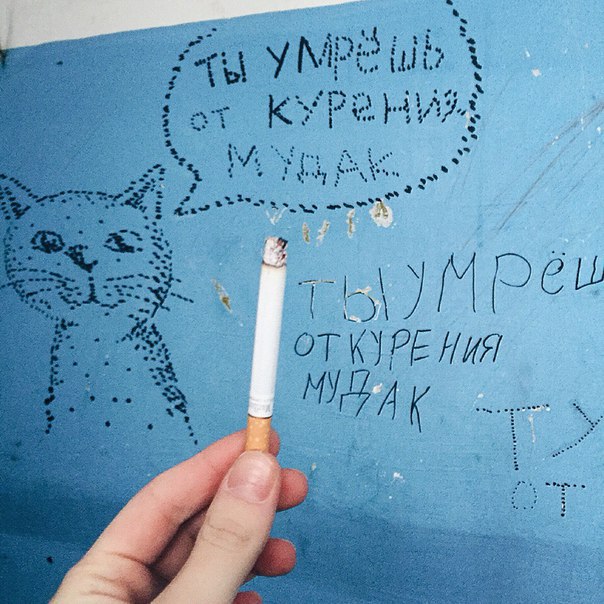 ТЫ УМРЁШЬ
ОТ КУРЕНИЯ
МУДАК
ТЫ УМРЁШ
ОТ КУРЕНИЯ
МУДАК
ТУ
ОТ